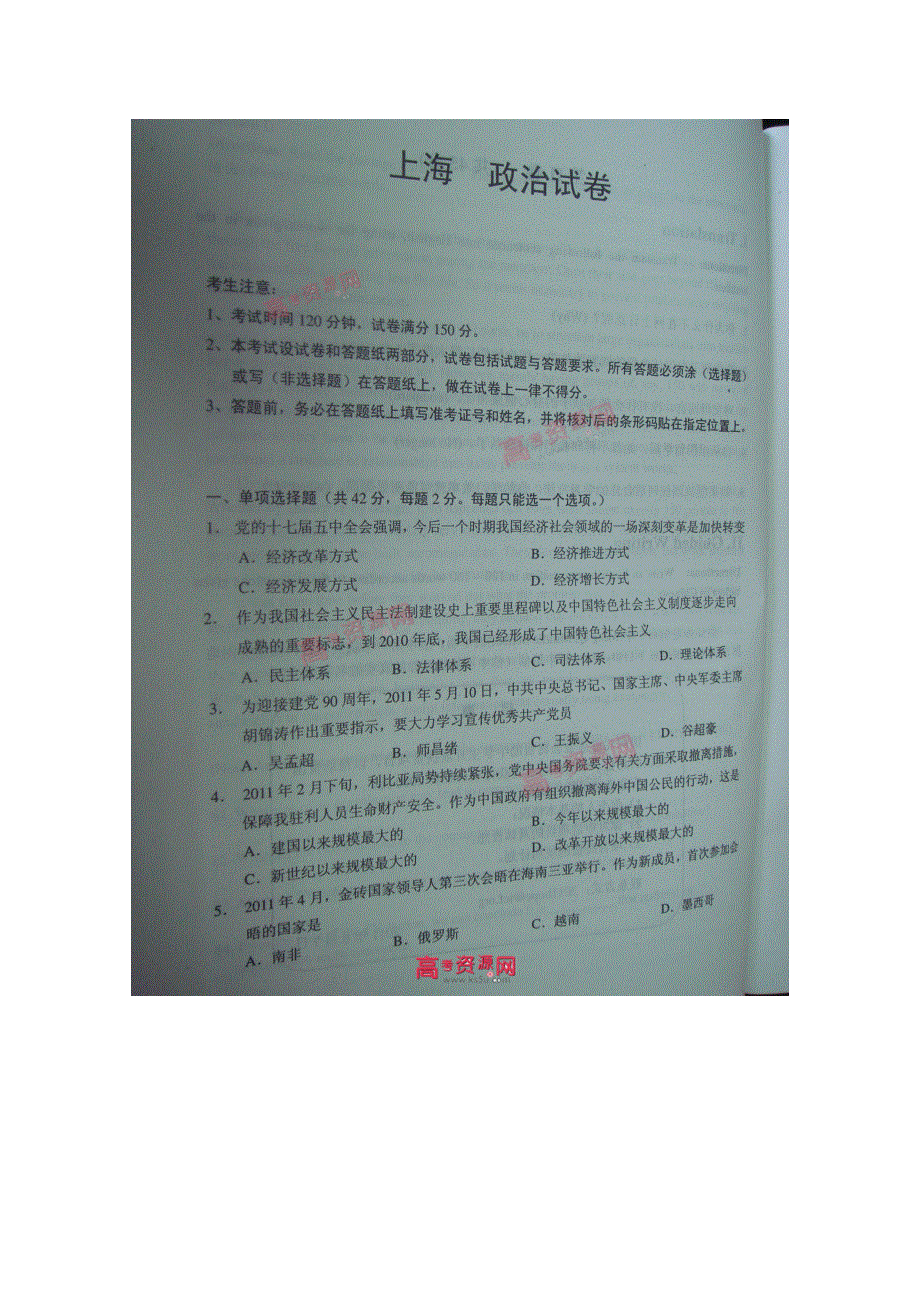 上海 政治试卷
考生注意：
1、考试时间120分钟，试卷满分150分。
2、本考试设试卷和答题纸两部分，试卷包括试题与答题要求。所有答题必须涂（选择题）
或写（非选择题）在答题纸上，做在试卷上一律不得分。
3、答题前，务必在答题纸上填写准考证号和姓名，并将核对后的条形码贴在指定位置上。
一、单项选择题（共42分，每题2分。每题只能选一个选项。）
1. 党的十七届五中全会强调，今后一个时期我国经济社会领域的一场深刻变革是加快转变
A．经济改革方式 B．经济推进方式
C．经济发展方式 D．经济增长方式
2. 作为我国社会主义民主法制建设史上重要里程碑以及中国特色社会主义制度逐步走向
成熟的重要标志，到2010年底，我国已经形成了中国特色社会主义
A．民主体系 B．法律体系 C．司法体系 D．理论体系
3. 为迎接建党90周年，2011年5月10日，中共中央总书记、国家主席、中央军委主席
胡锦涛作出重要指示，要大力学习宣传优秀共产党员
A．吴孟超 B．师昌绪 C．王振义 D．谷超豪
4. 2011年2月下旬，利比亚局势持续紧张，党中央国务院要求有关方面采取撤离措施，
保障我驻利人员生命财产安全。作为中国政府有组织撤离海外中国公民的行动，这是
A．建国以来规模最大的 B．今年以来规模最大的
C．新世纪以来规模最大的 D．改革开放以来规模最大的
5. 2011年4月，金砖国家领导人第三次会晤在海南三亚举行。作为新成员，首次参加会
晤的国家是
A．南非 B．俄罗斯 C．越南 D．墨西哥
高考资源网
www.ks5u.com